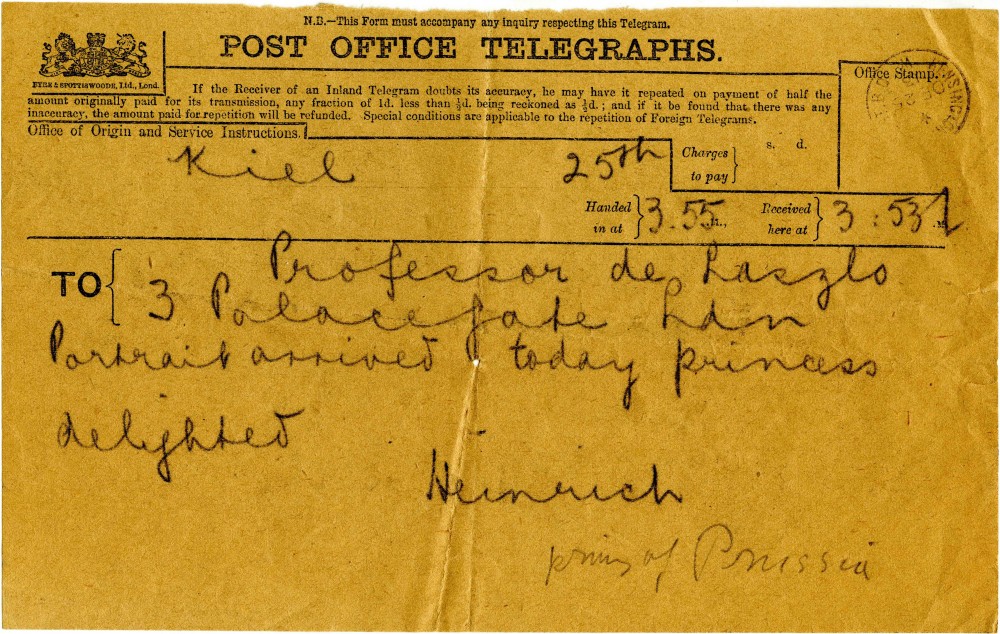 N.B.—This Form must accompany any inquiry respecting this Telegram.
POST OFFICE TELEGRAPHS.
EYRE & SPOTTISWOODE, Ltd., Lond.
If the Receiver of an Inland Telegram doubts its accuracy, he may have it repeated on payment of half the
amount originally paid for its transmission, any fraction of 1d. less than ½d. being reckoned as ½d.; and if it be found that there was any
inaccuracy, the amount paid for repetition will be refunded. Special conditions are applicable to the repetition of Foreign Telegrams.
Office Stamp.
Office of Origin and Service Instructions.
Charges to pay
s. d.
Kiel 25th
Handed in at 3.55 M., Received here at 3:53 M
TO
Professor de Laszlo
3 Palacegate Ldn
Portrait arrived today princess
delighted
Heinrich
of Prussia